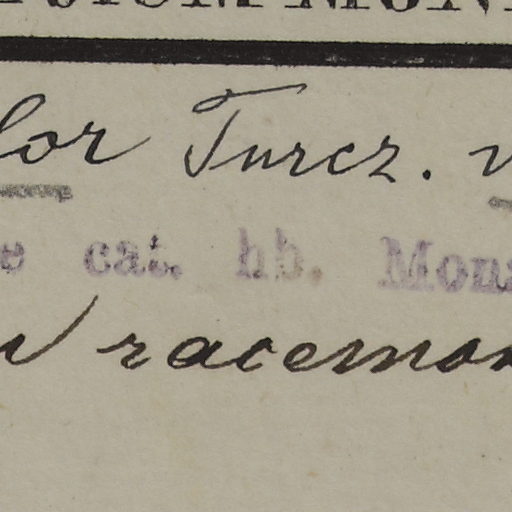 lor Turcz. v
e cat. hb. Mona
racemon